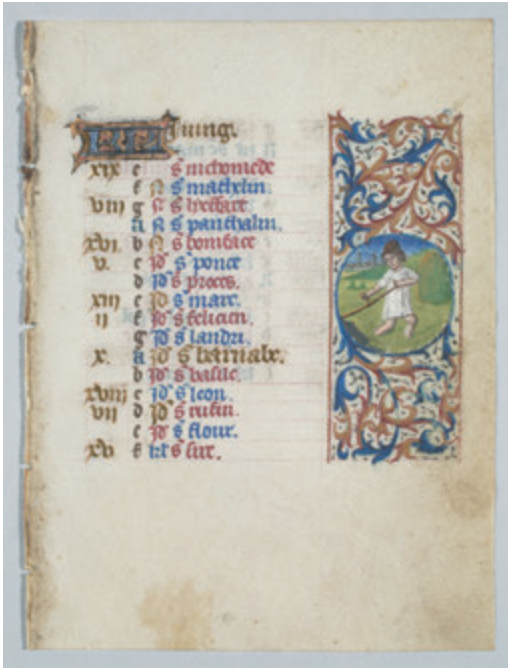 Juing.
xix e s nichomede
f N s mathelin.
viii g
a N s panthalin.
xvi. b N s boniface
v. c Id s ponce
d Id s proces.
xiii e Id s marc.
ii f Id s felicien.
g Id s landri.
x. a Id s barnabe.
b Id s basile.
xviii c Id s leon.
vii d Id s rufin.
e Id s flour.
xv f kl s